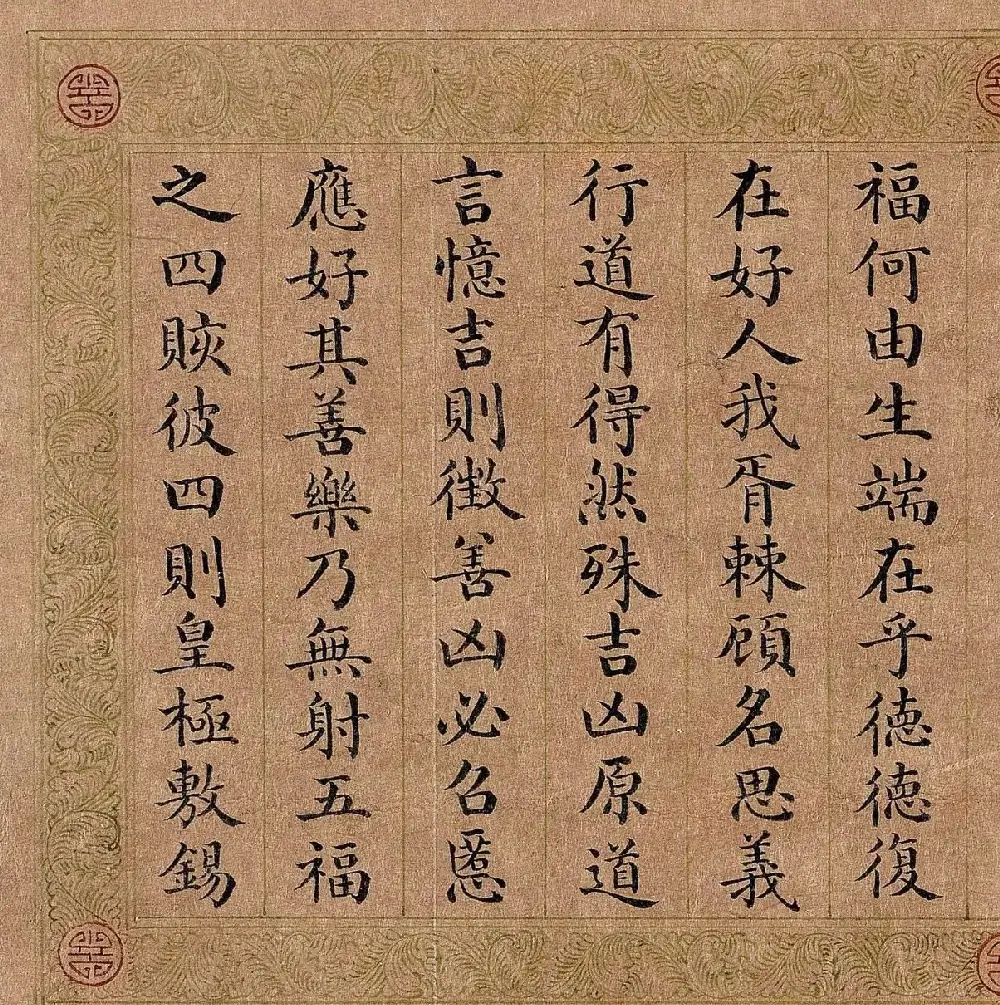 福何由生端在乎徳徳復
在好人我胥棘顧名思義
行道有得然殊吉凶原道
言憶吉則徴善凶必召慝
應好其善樂乃無射五福
之四賅彼四則皇極敷錫